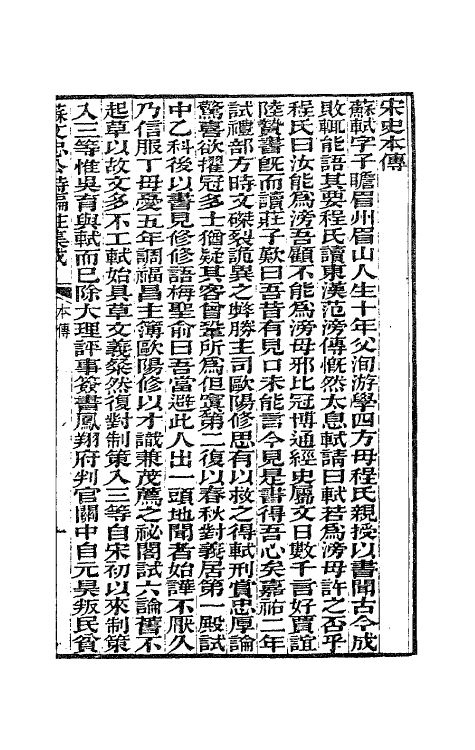 宋史本傳
蘇軾字子瞻眉州眉山人生十年父洵游學四方母程氏親授以書聞古今成
敗輒能語其要程氏讀東漢范滂傳慨然太息軾請曰軾若為滂母許之否乎
程氏曰汝能為滂吾顧不能為滂母邪比冠博通經史屬文日數千言好賈誼
陸贄書既而讀莊子歎曰吾昔有見口未能言今見是書得吾心矣嘉祐二年
試禮部方時文磔裂詭異之弊勝主司歐陽修思有以救之得軾刑賞忠厚論
驚喜欲擢冠多士猶疑其客曾鞏所為但寘第二復以春秋對義居第一殿試
中乙科後以書見修修語梅聖俞曰吾當避此人出一頭地聞者始譁不厭久
乃信服丁母憂五年調福昌主簿歐陽修以才識兼茂薦之祕閣試六論舊不
起草以故文多不工軾始具草文義粲然復對制策入三等自宋初以來制策
入三等惟吳育與軾而已除大理評事簽書鳳翔府判官關中自元昊叛民貧
蘇文忠公詩編註集成 本傳 一